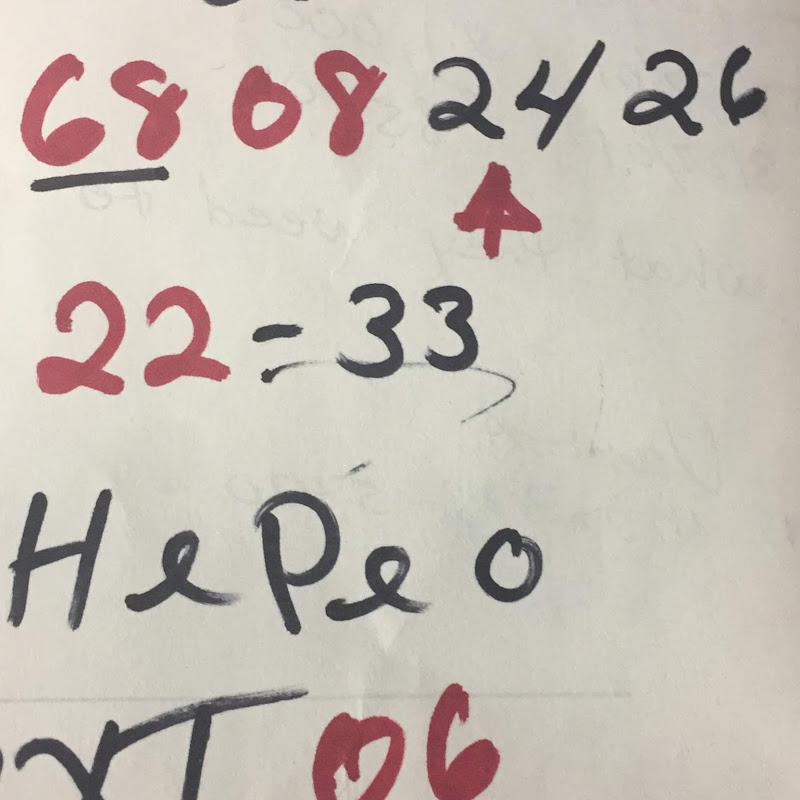 68 08 24 26
22 = 33
HePeo
06